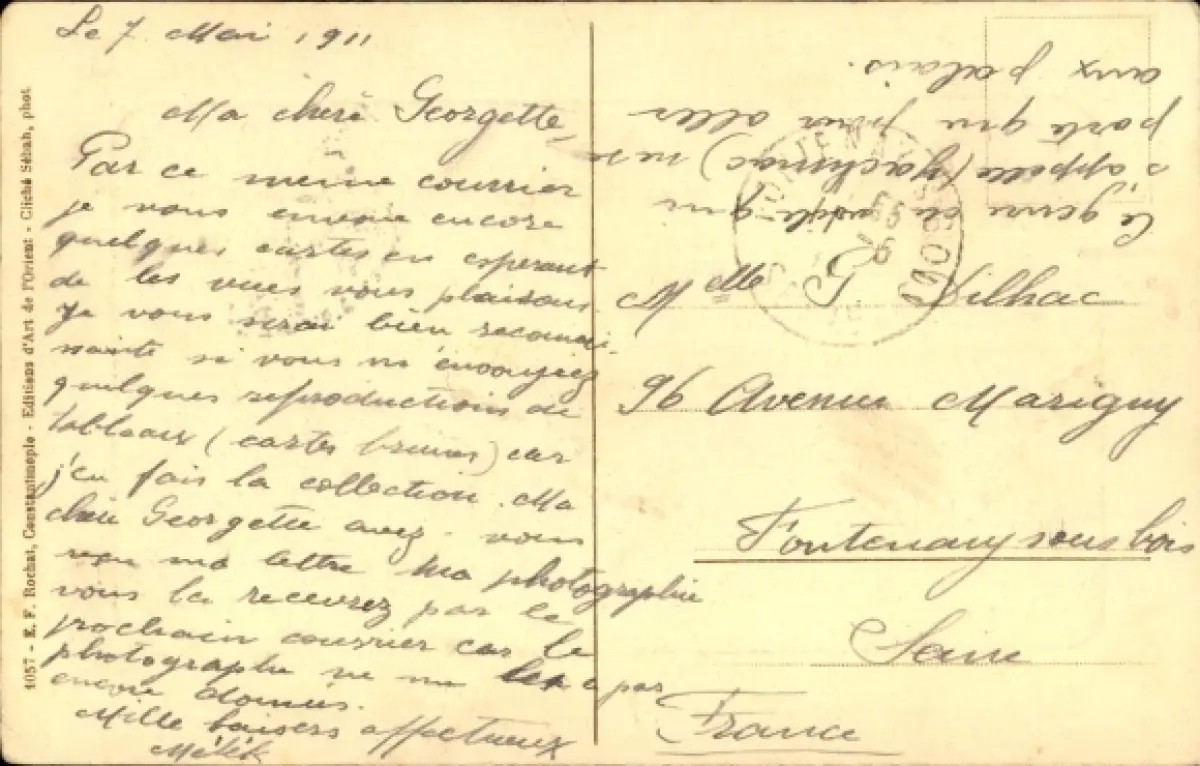 Le 7 Mai 1911
Ma cheri Georgette,
Par ce même courrier
je vous envoie encore
quelques cartes en esperant
de les vues vous plaisans
Je vous serai bien reconnai-
ssante si vous m'envoyiez
quelques reproductions de
tableaux (cartes brunes) car
j'en fais la collection. Ma
cheri Georgette avez-vous
reçu ma lettre Ma photographie
vous la recevrez par le
prochain courrier car le
photographe ne me les a pas
encore donnés.
Mille baisers affectueux
Mélek
Ce genre de voile qui
s'appelle (Yachmac) ne se
porte que pour aller
aux palais.
Mlle G. Dilhac
96 Avenue Marigny
Fontenay sous bois
Seine
France
1057 - E. F. Rochat, Constantinople - Editions d'Art de l'Orient - Cliché Sébah, phot